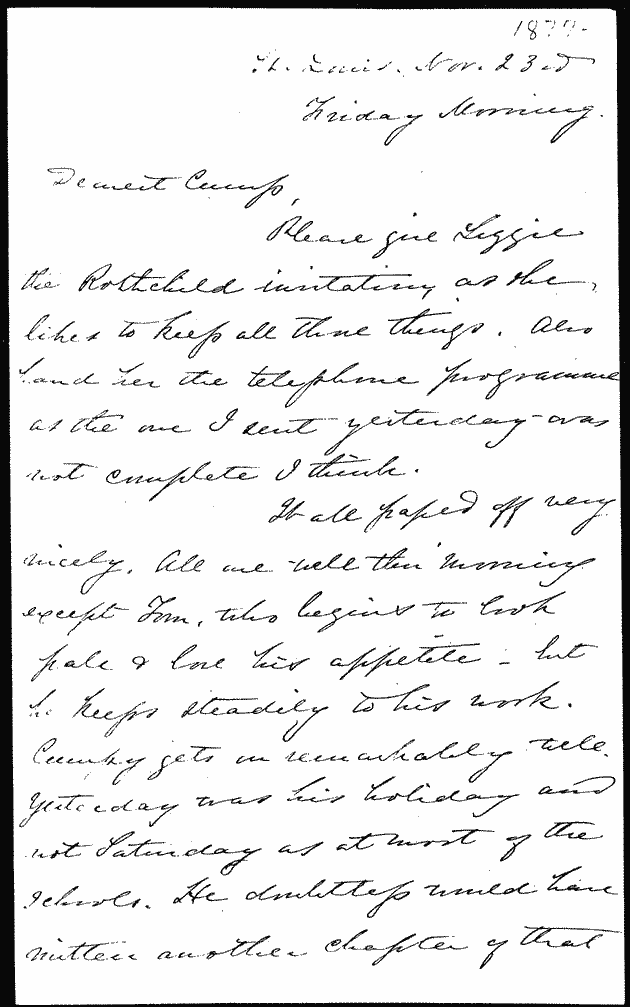 1877-
St. Louis. Nov. 23rd
Friday Morning.
Dearest Cump,
Please give Lizzie
the Rothchild invitation, as she
likes to keep all these things. Also
hand her the telephone programme
as the one I sent yesterday was
not complete I think.
It all passed off very
nicely. All are well this morning
except Tom, who begins to look
pale & lose his appetite - but
he keeps steadily to his work.
Cumpy gets on remarkably well.
Yesterday was his holiday and
not Saturday as at most of the
schools. He doubtless would have
written another chapter of that